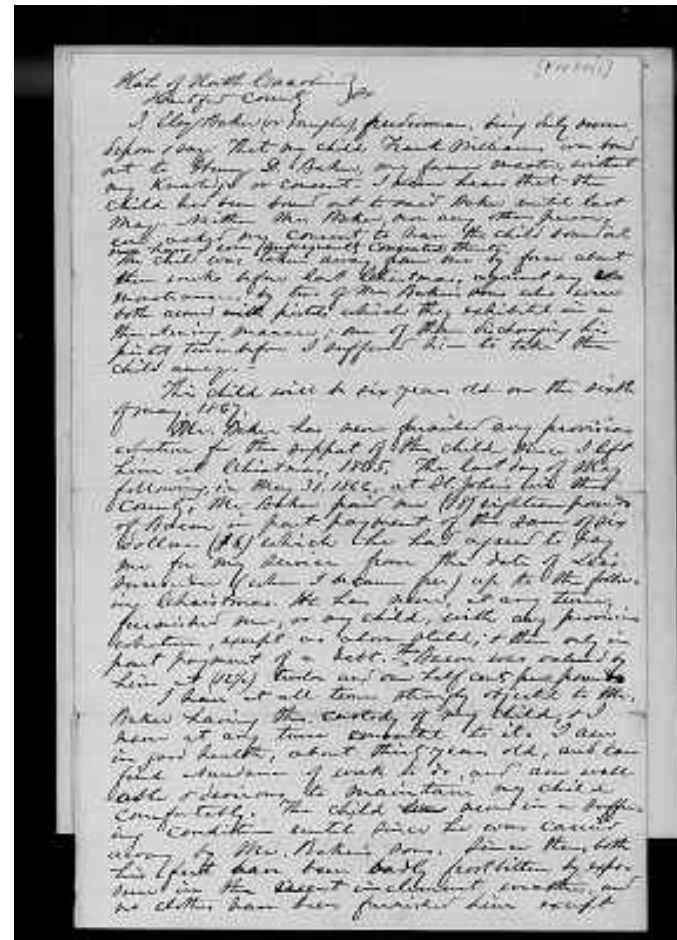 State of North Carolina }
Hertford County } ss
I, Clay Baker (or Vaughn) freedwoman, being duly sworn
depose & say: That my child, Frank Williams, was bound
out to Henry D. Baker, my former master, without
my knowledge or consent. I never heard that the
child had been bound out to said Baker until last
May. Neither Mr. Baker, nor any other person,
ever asked my consent to have the child bound out
nor have I ever subsequently consented thereto.
The child was taken away from me by force about
three weeks before last Christmas, against my
remonstrance, by two of Mr. Baker's sons who were
both armed with pistols which they exhibited in a
threatening manner; one of them discharging his
pistol twice before I suffered him to take the
child away.
This child will be six years old on the sixth
of May, 1867.
Mr. Baker has never furnished any provisions
whatever for the support of the child since I left
him at Christmas, 1865. The last day of May
following, in May 31, 1866, at St Johns in this
County, Mr. Baker paid me (18) eighteen pounds
of Bacon, in part payment of the sum of six
Dollars ($6) which he had agreed to pay
me for my services from the date of Lee's
surrender (when I became free) up to the follow-
ing Christmas. He has never, at any time,
furnished me, or my child, with any provisions
whatever, except as above stated, & then only in
part payment of a debt. The Bacon was valued by
him at (12½) twelve and one half cents per pound
I have at all times strongly objected to Mr.
Baker having the custody of my child, & I
never at any time consented to it. I am
in good health, about thirty years old, and can
find abundance of work to do, and am well
able & desirous to maintain my child
comfortably. The child never was in a suffer-
ing condition until since he was carried
away by Mr. Baker's sons. Since then, both
his feet have been badly frostbitten by expo-
sure in the recent inclement weather, and
no clothes have been furnished him except